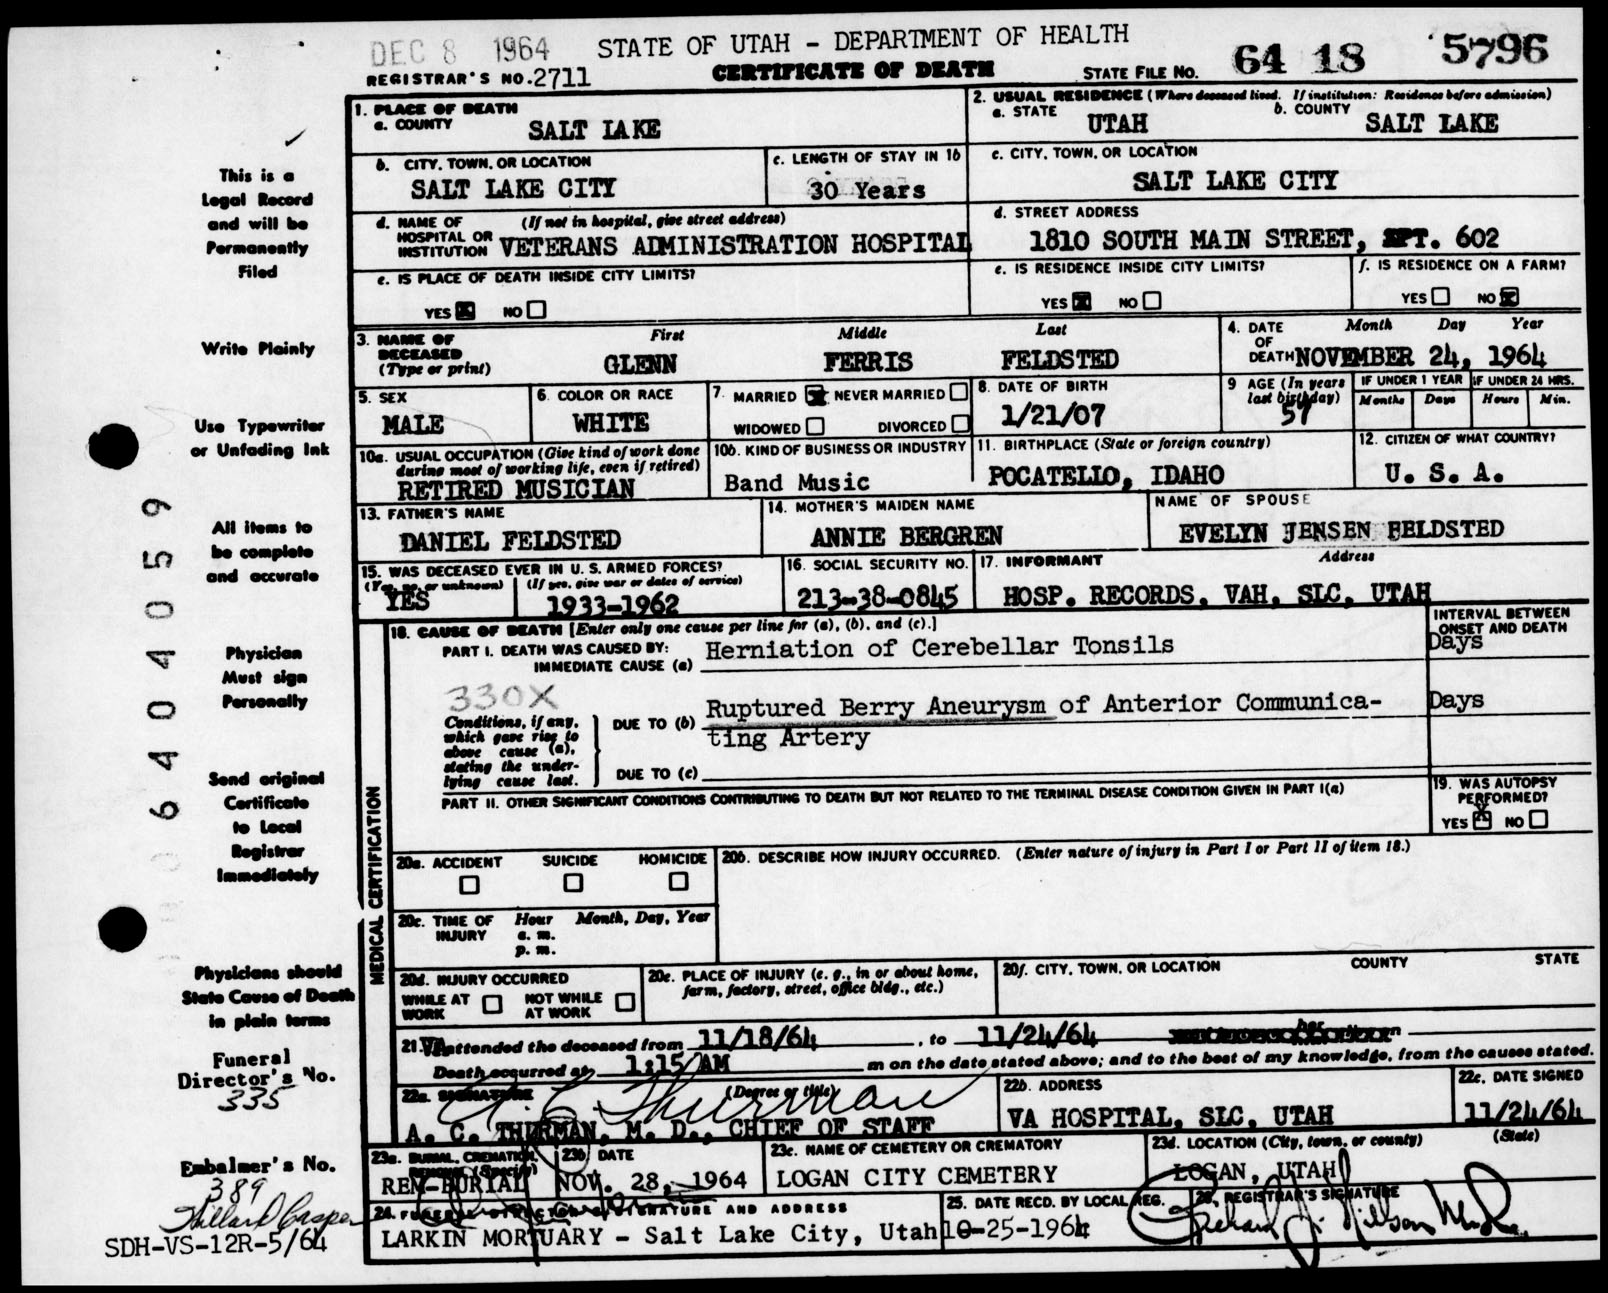 DEC 8 1964 STATE OF UTAH - DEPARTMENT OF HEALTH
REGISTRAR'S NO. 2711 CERTIFICATE OF DEATH STATE FILE NO. 64 18 5796
1. PLACE OF DEATH
a. COUNTY SALT LAKE
2. USUAL RESIDENCE (Where deceased lived. If institution: Residence before admission)
a. STATE UTAH b. COUNTY SALT LAKE
b. CITY, TOWN, OR LOCATION SALT LAKE CITY
c. LENGTH OF STAY IN 1b 30 Years
c. CITY, TOWN, OR LOCATION SALT LAKE CITY
d. NAME OF HOSPITAL OR INSTITUTION (If not in hospital, give street address) VETERANS ADMINISTRATION HOSPITAL
d. STREET ADDRESS 1810 SOUTH MAIN STREET, APT. 602
e. IS PLACE OF DEATH INSIDE CITY LIMITS?
YES X NO
e. IS RESIDENCE INSIDE CITY LIMITS?
YES X NO
f. IS RESIDENCE ON A FARM?
YES NO X
3. NAME OF DECEASED (Type or print) First Middle Last
GLENN FERRIS FELDSTED
4. DATE OF DEATH Month Day Year
NOVEMBER 24, 1964
5. SEX MALE
6. COLOR OR RACE WHITE
7. MARRIED X NEVER MARRIED
WIDOWED DIVORCED
8. DATE OF BIRTH 1/21/07
9 AGE (In years last birthday) 57
IF UNDER 1 YEAR Months Days
IF UNDER 24 HRS. Hours Min.
10a. USUAL OCCUPATION (Give kind of work done during most of working life, even if retired)
RETIRED MUSICIAN
10b. KIND OF BUSINESS OR INDUSTRY
Band Music
11. BIRTHPLACE (State or foreign country)
POCATELLO, IDAHO
12. CITIZEN OF WHAT COUNTRY?
U. S. A.
13. FATHER'S NAME
DANIEL FELDSTED
14. MOTHER'S MAIDEN NAME
ANNIE BERGREN
NAME OF SPOUSE
EVELYN JENSEN FELDSTED
15. WAS DECEASED EVER IN U. S. ARMED FORCES?
(Yes, no, or unknown) (If yes, give war or dates of service)
YES 1933-1962
16. SOCIAL SECURITY NO.
213-38-0845
17. INFORMANT Address
HOSP. RECORDS, VAH, SLC, UTAH
MEDICAL CERTIFICATION
18. CAUSE OF DEATH [Enter only one cause per line for (a), (b), and (c).]
INTERVAL BETWEEN ONSET AND DEATH
PART I. DEATH WAS CAUSED BY:
IMMEDIATE CAUSE (a) Herniation of Cerebellar Tonsils Days
330X
Conditions, if any, which gave rise to above cause (a), stating the underlying cause last.
DUE TO (b) Ruptured Berry Aneurysm of Anterior Communica- Days
ting Artery
DUE TO (c)
PART II. OTHER SIGNIFICANT CONDITIONS CONTRIBUTING TO DEATH BUT NOT RELATED TO THE TERMINAL DISEASE CONDITION GIVEN IN PART I(a)
19. WAS AUTOPSY PERFORMED?
YES X NO
20a. ACCIDENT SUICIDE HOMICIDE
20b. DESCRIBE HOW INJURY OCCURRED. (Enter nature of injury in Part I or Part II of item 18.)
20c. TIME OF INJURY Hour Month, Day, Year
a. m.
p. m.
20d. INJURY OCCURRED
WHILE AT WORK NOT WHILE AT WORK
20e. PLACE OF INJURY (e. g., in or about home, farm, factory, street, office bldg., etc.)
20f. CITY, TOWN, OR LOCATION COUNTY STATE
21. VA attended the deceased from 11/18/64, to 11/24/64
Death occurred at 1:15 AM m on the date stated above; and to the best of my knowledge, from the causes stated.
22a. SIGNATURE (Degree or title)
A. C. Thurman
A. C. THURMAN, M. D., CHIEF OF STAFF
22b. ADDRESS
VA HOSPITAL, SLC, UTAH
22c. DATE SIGNED
11/24/64
23a. BURIAL, CREMATION, REMOVAL (Specify)
REM-BURIAL
23b DATE
NOV. 28, 1964
23c. NAME OF CEMETERY OR CREMATORY
LOGAN CITY CEMETERY
23d. LOCATION (City, town, or county) (State)
LOGAN, UTAH
24. FUNERAL DIRECTOR'S SIGNATURE AND ADDRESS
LARKIN MORTUARY - Salt Lake City, Utah
25. DATE RECD. BY LOCAL REG.
10-25-1964
26. REGISTRAR'S SIGNATURE
This is a
Legal Record
and will be
Permanently
Filed
Write Plainly
Use Typewriter
or Unfading Ink
All items to
be complete
and accurate
Physician
Must sign
Personally
Send original
Certificate
to Local
Registrar
Immediately
Physicians should
State Cause of Death
in plain terms
Funeral
Director's No.
335
Embalmer's No.
389
SDH-VS-12R-5/64
6404059